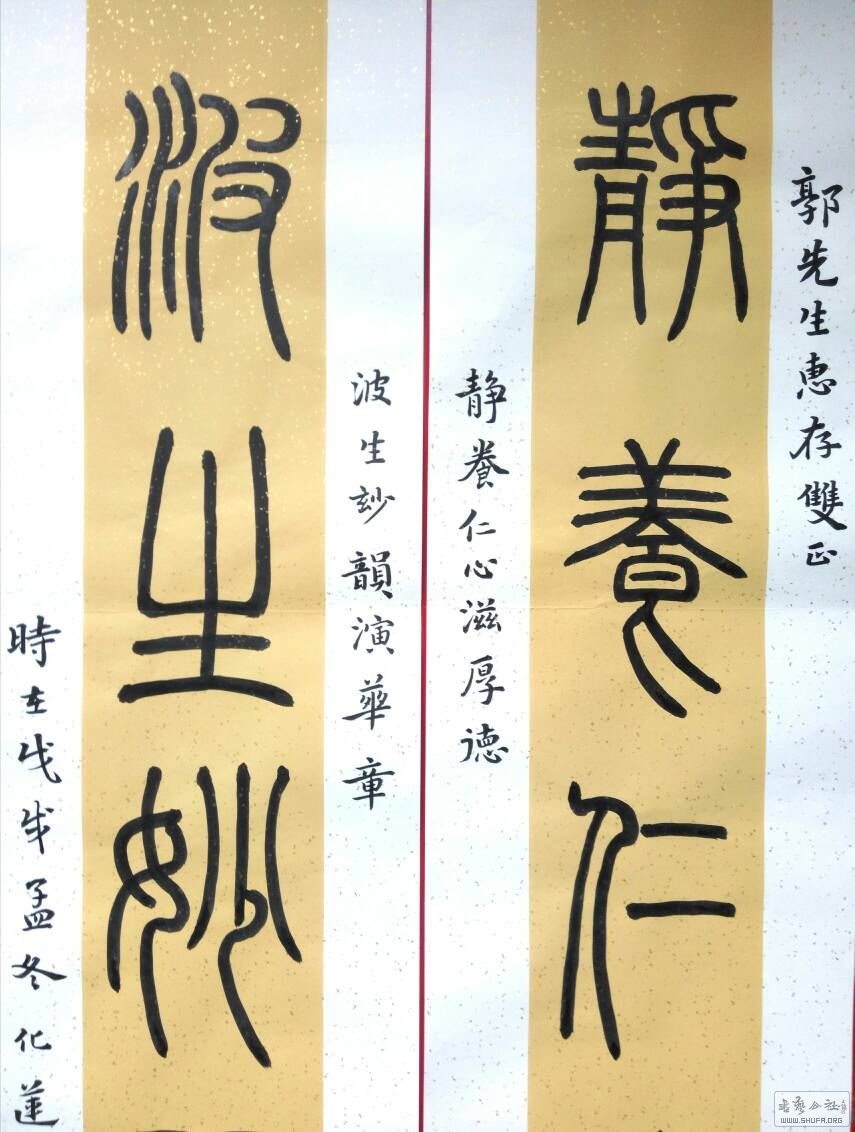 郭先生惠存雙正
靜養仁
静養仁心滋厚德
波生妙韻演華章
波生妙
時在戊戌孟冬化蓮
書藝公社
WWW.SHUFA.ORG